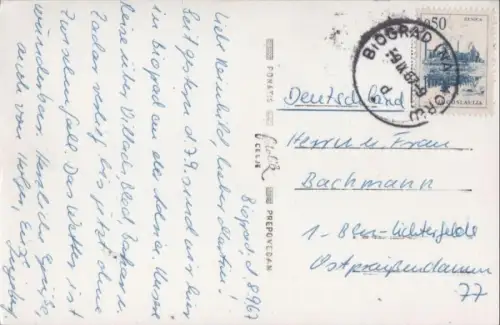 Biograd, d. 8.9.67
Liebe Reinhild, lieber Martin!
Seit gestern, d. 7.9. sind wir hier
in Biograd an der Adria. Unsere
Reise über Villach, Bled,
Zadar verlief bis jetzt ohne
Zwischenfall. Das Wetter ist
wunderbar. Herzliche Grüße,
auch von Holger, Eure
Ingeborg
PONATIS
CELJE
PREPOVEDAN
BIOGRAD (NA MORU)
ZENICA
0,50
JUGOSLAVIJA
Deutschland
Herrn u. Frau
Bachmann
1-Bln-Lichterfelde
Ostpreußendamm
77